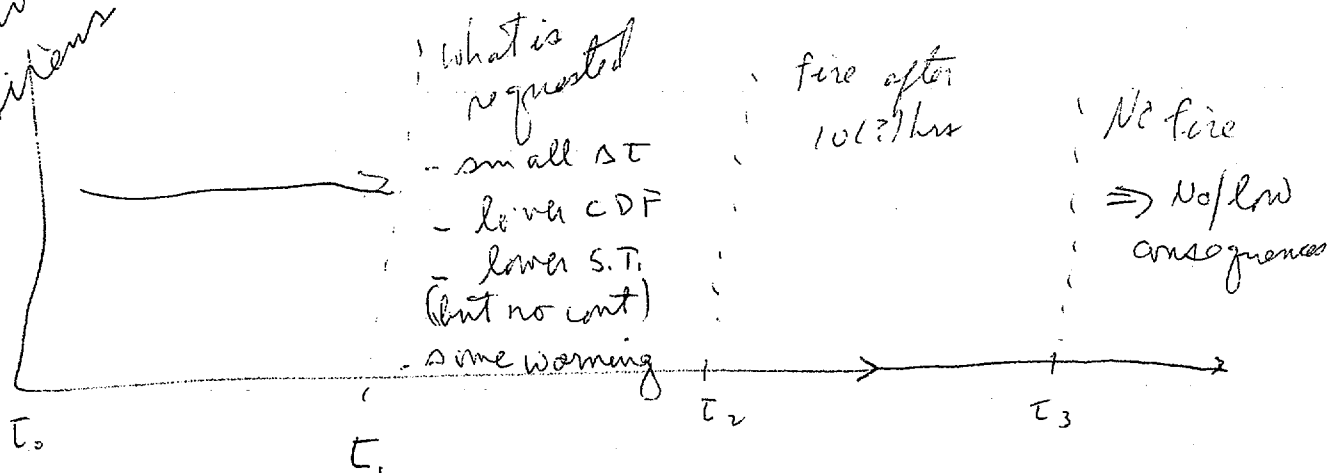 What is
requested
- small ΔT
- lower CDF
- lower S.T.
(but no cont)
- some warning
fire after
10(?) hrs
No fire
⇒ No/low
consequences
T₀
T₁
T₂
T₃